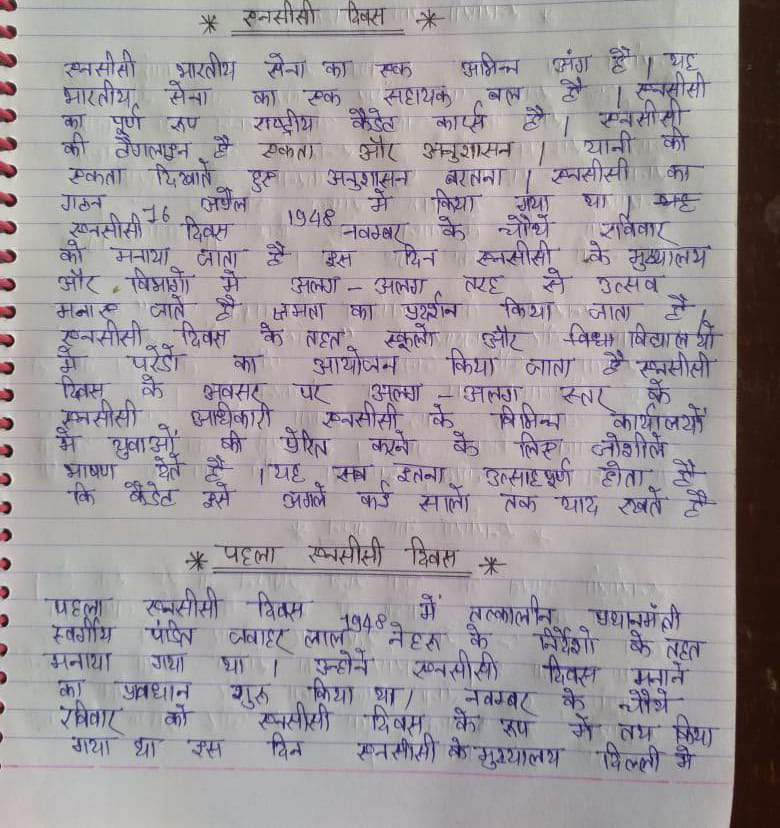 * एनसीसी दिवस *
एनसीसी भारतीय सेना का एक अभिन्न अंग है । यह
भारतीय सेना का एक सहायक बल है । एनसीसी
का पूर्ण रूप राष्ट्रीय कैडेट कार्प्स है । एनसीसी
की टैगलाइन है एकता और अनुशासन । यानी की
एकता दिखाते हुए अनुशासन बरतना । एनसीसी का
गठन 16 अप्रैल 1948 में किया गया था । यह
एनसीसी दिवस नवम्बर के चौथे रविवार
को मनाया जाता है इस दिन एनसीसी के मुख्यालय
और विभागो में अलग - अलग तरह से उत्सव
मनाए जाते है क्षमता का प्रदर्शन किया जाता है ।
एनसीसी दिवस के तहत स्कूलो और विधा विद्यालयो
में परेडो का आयोजन किया जाता है एनसीसी
दिवस के अवसर पर अलग - अलग स्तर के
एनसीसी अधिकारी एनसीसी के विभिन्न कार्यालयों
में युवाओं को प्रेरित करने के लिए जोशीले
भाषण देते है । यह सब इतना उत्साहपूर्ण होता है
कि कैडेट इसे अगले कई सालो तक याद रखते है
* पहला एनसीसी दिवस *
पहला एनसीसी दिवस 1948 में तत्कालीन प्रधानमंत्री
स्वर्गीय पंडित जवाहर लाल नेहरू के निर्देशो के तहत
मनाया गया था । उन्होने एनसीसी दिवस मनाने
का प्रवधान शुरू किया था । नवम्बर के चौथे
रविवार को एनसीसी दिवस के रूप में तय किया
गया था इस दिन एनसीसी के मुख्यालय दिल्ली में